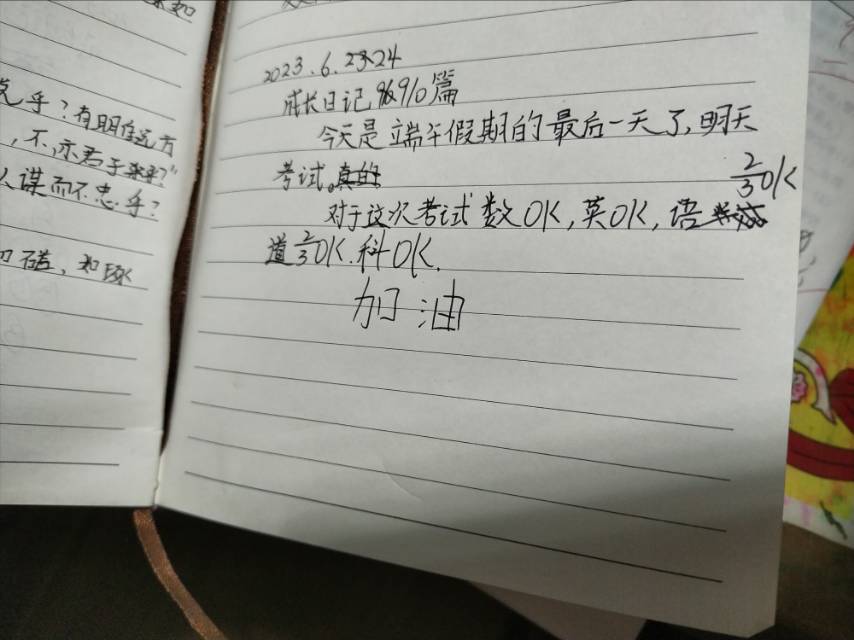 乎？有朋自远方
，不亦君子乎？"
人谋而不忠乎？
如磋，如琢
2023.6.2324
成长日记910篇
今天是端午假期的最后一天了，明天
考试。真的
对于这次考试数OK，英OK，语2/3OK
道2/3OK.科OK.
加油